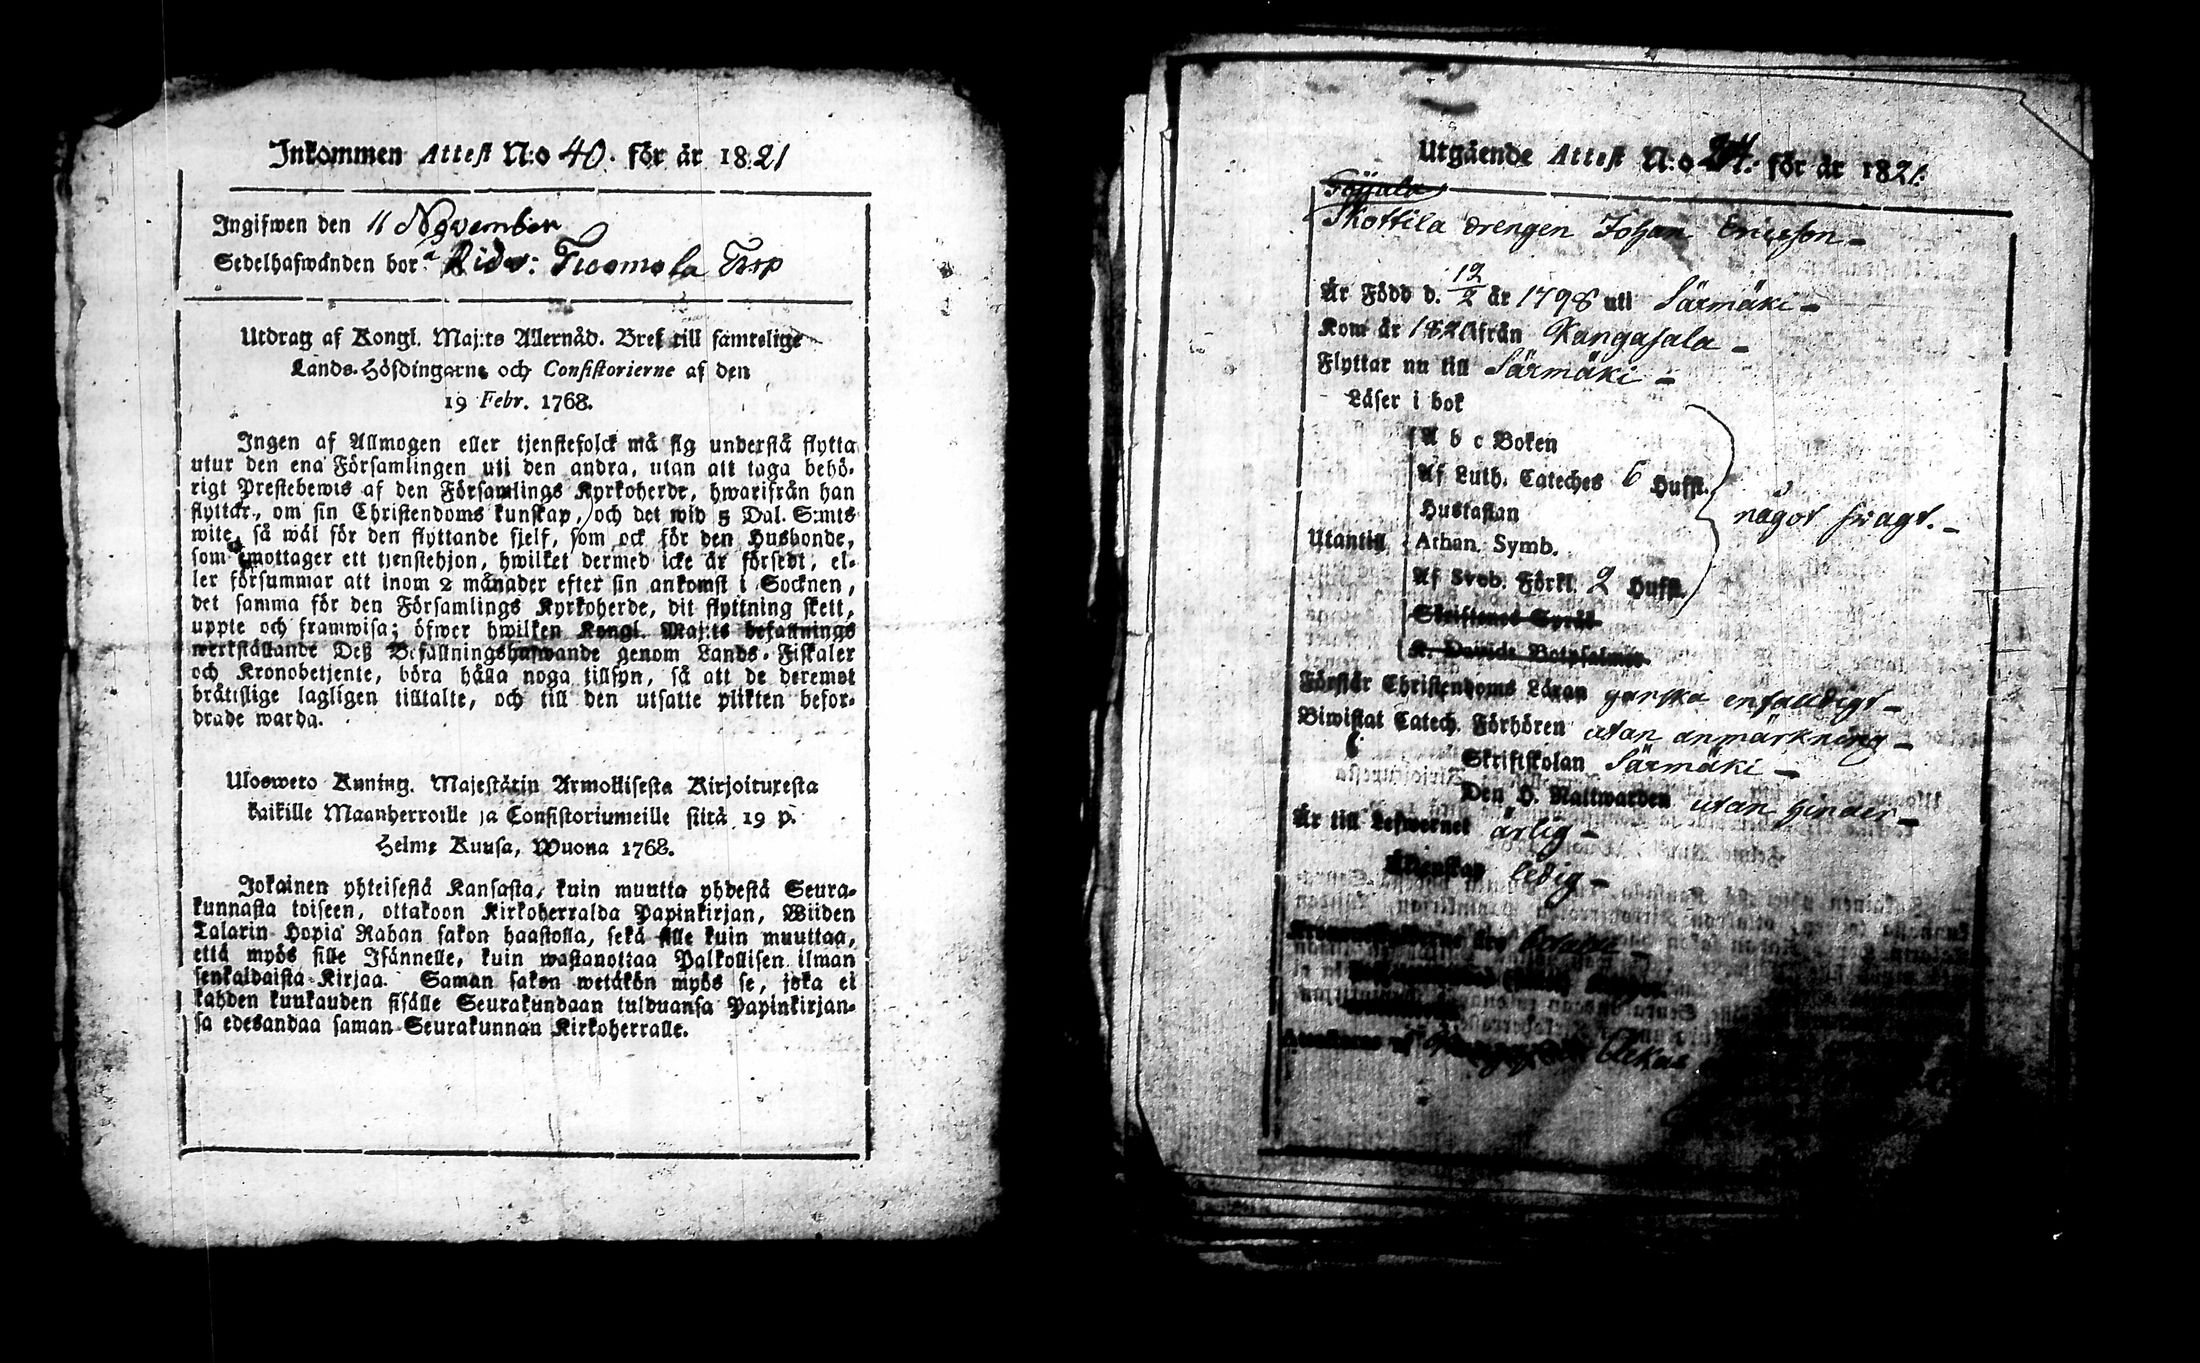 Inkommen Attest N:o 40. för år 1821
Ingifwen den 11 November
Sedelhafwanden bor
Utdrag af Kongl. Maj:ts Allernåd. Bref till samtelige
Lands-Höfdingarne och Consistorierne af den
19 Febr. 1768.
Ingen af Allmogen eller tjenstefolck må sig understå flytta
utur den ena Församlingen uti den andra, utan att taga behö-
rigt Prestebewis af den Församlings Kyrkoherde, hwarifrån han
flyttar, om sin Christendoms kunskap, och det wid 5 Dal. S:mts
wite, så wäl för den flyttande sjelf, som ock för den Husbonde,
som emottager ett tjenstehjon, hwilket dermed icke är försedt, el-
ler försummar att inom 2 månader efter sin ankomst i Socknen,
det samma för den Församlings Kyrkoherde, dit flyttning skett,
uppte och framwisa; öfwer hwilken Kongl. Maj:ts befallnings
werkställande Deß Befallningshafwande genom Lands-Fiskaler
och Kronobetjente, böra hålla noga tillsyn, så att de deremot
bråttslige lagligen tilltalte, och till den utsatte plikten befor-
drade warda.
Ulosweto Kuning. Majestätin Armollisesta Kirjoituxesta
kaikille Maanherroille ja Consistoriumeille siitä 19 p.
Helme Kuusa, Wuona 1768.
Jokainen yhteisestä Kansasta, kuin muutta yhdestä Seura-
kunnasta toiseen, ottakoon Kirkoherralda Papinkirjan, Wiiden
Talarin Hopia Rahan sakon haastolla, sekä sille kuin muuttaa,
että myös sille Isännelle, kuin wastanottaa Palkollisen ilman
senkaldaista Kirjaa. Saman sakon wetäkön myös se, joka ei
kahden kuukauden sisälle Seurakundaan tulduansa Papinkirjan-
sa edesandaa saman Seurakunnan Kirkoherralle.
Utgående Attest N:o för år 1821.
Skottila drengen Johan Ericsson
Är Född d. 12/2 år 1798 uti Särmäki
Kom år ifrån Kangasala
Flyttar nu till Särmäki
Läser i bok
A b c Boken
Af Luth. Cateches 6 Hufst.
Hustaflan
något swagt.
Utantill Athan. Symb.
Af Sveb. Förkl. 2 Hufst.
Skriftenes Språk
K. Davids Botpsalmer
Förstår Christendoms Läran ganska enfaldigt
Biwistat Catech. Förhören utan anmärkning
Skriftskolan Särmäki
Den H. Nattwarden utan hinder
Är till Lefwernet ärlig
ledig